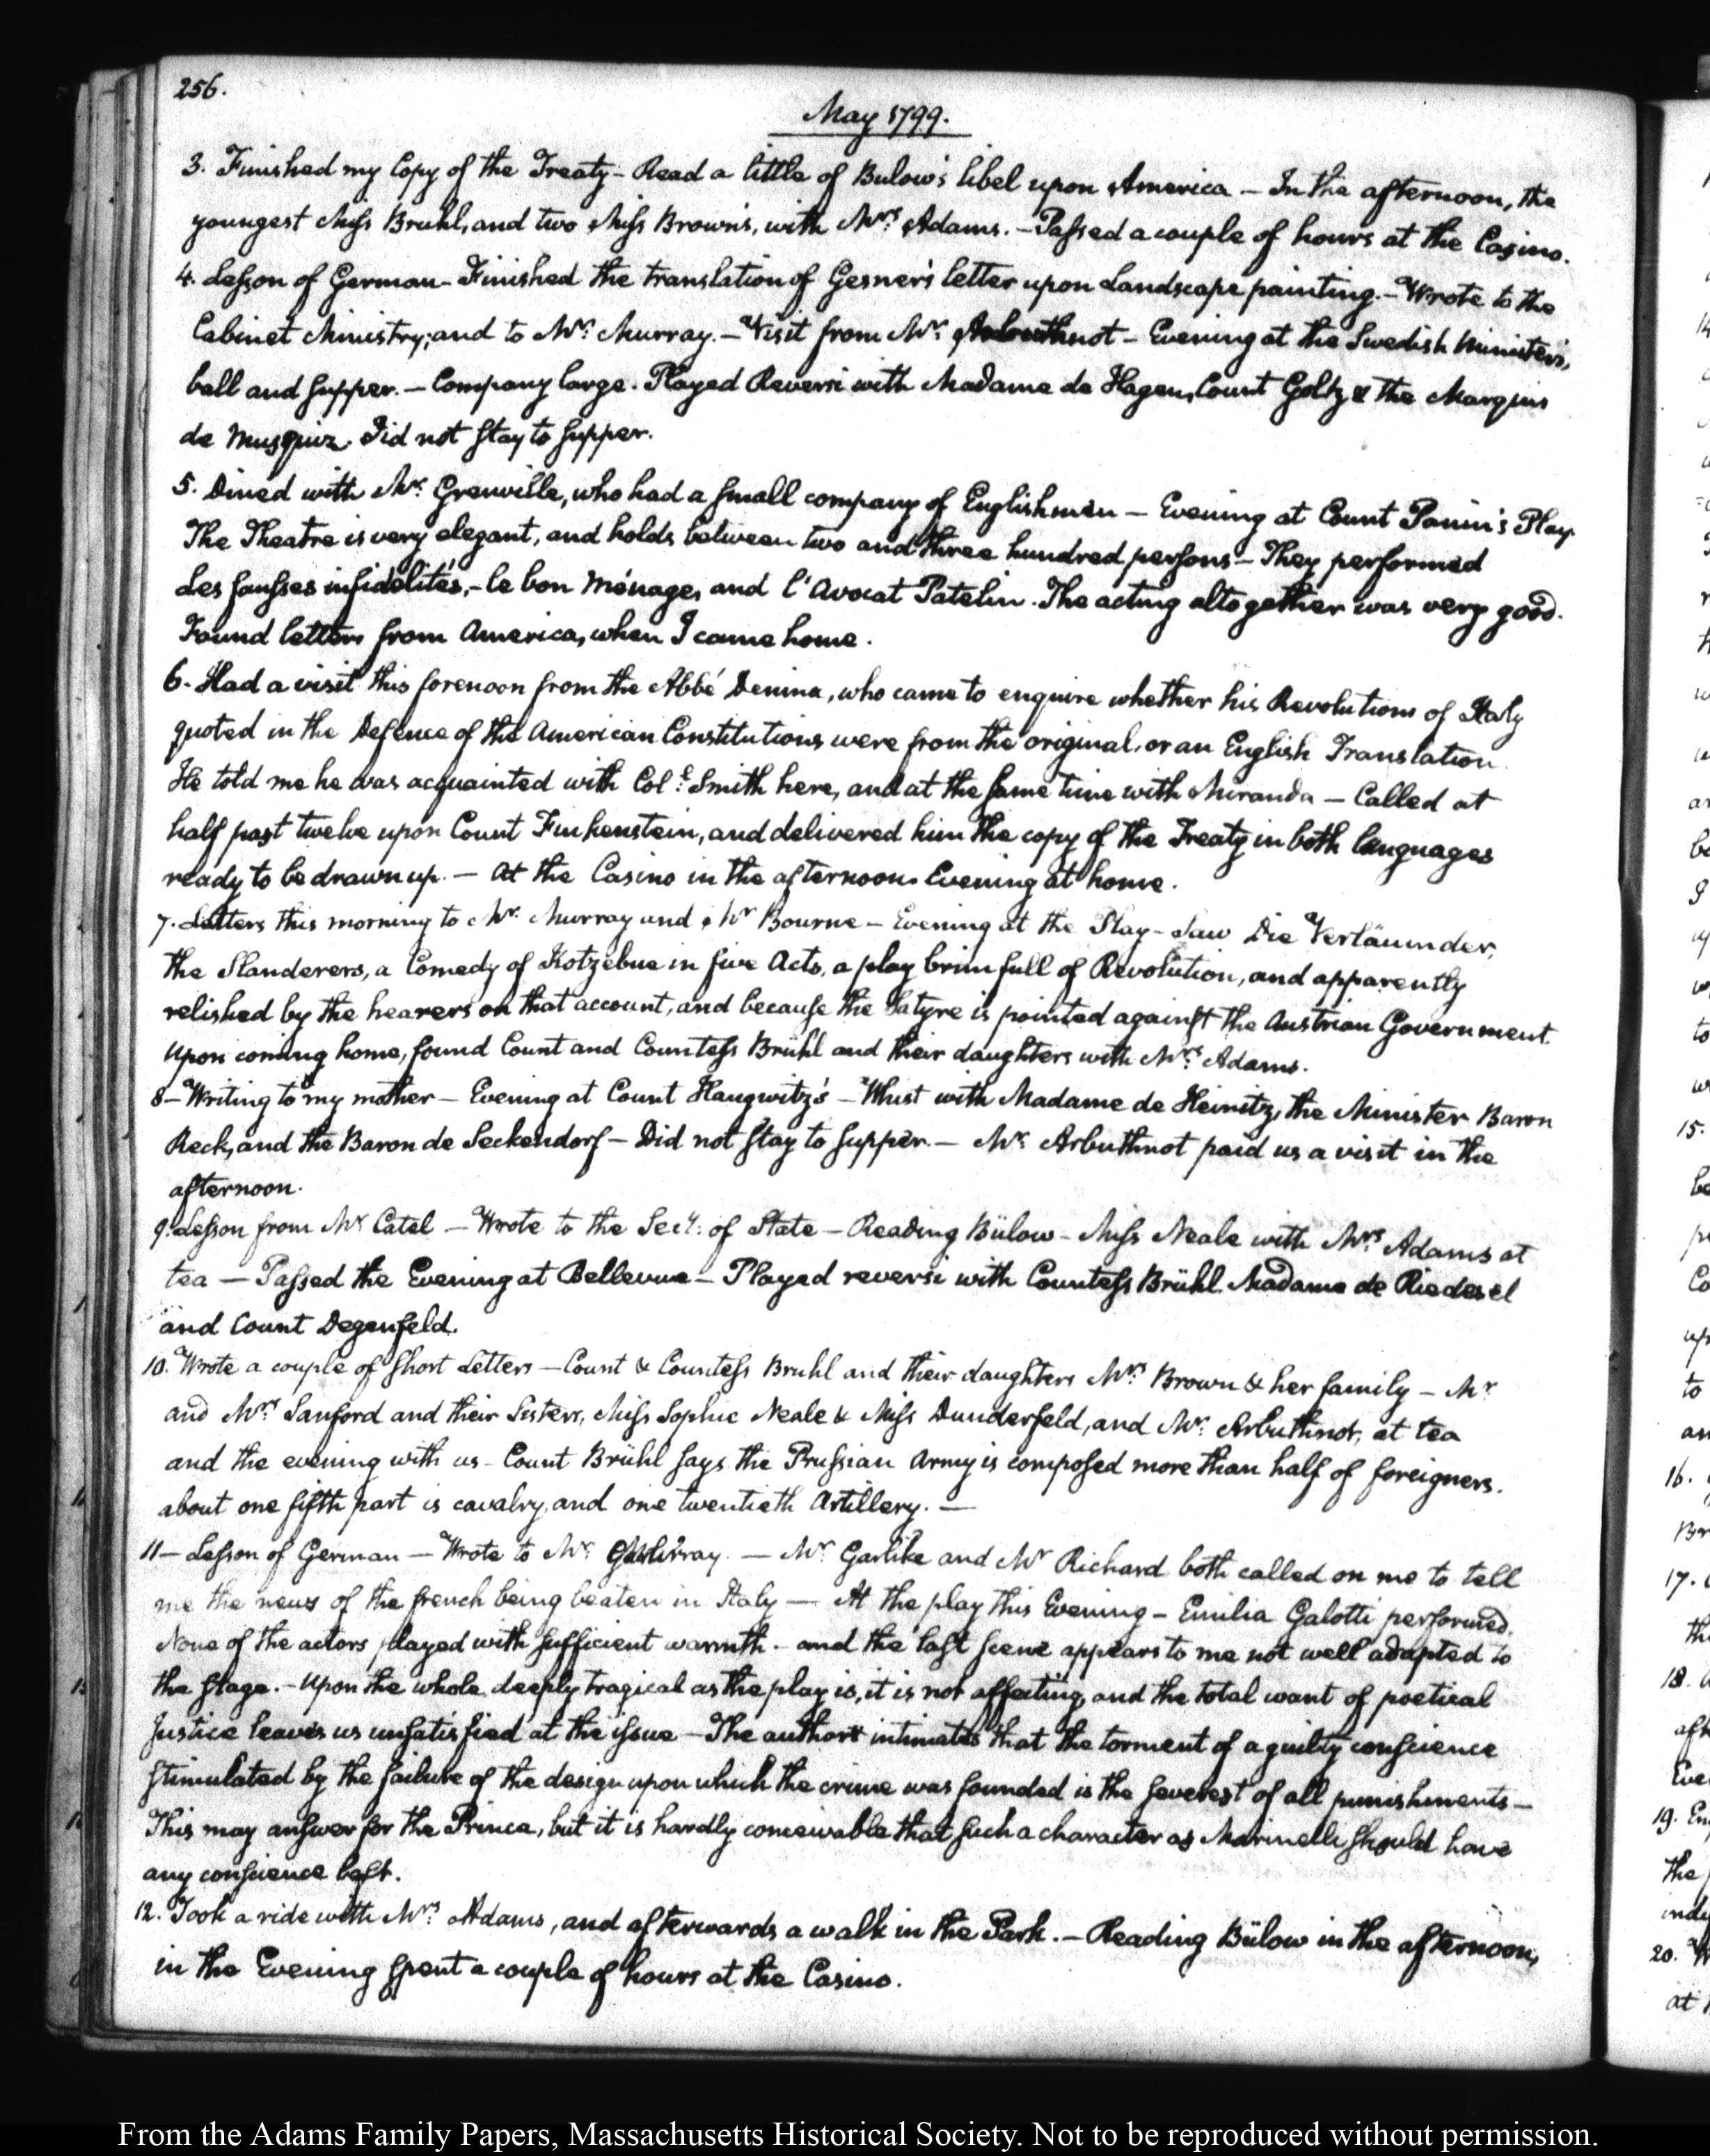 256.
May 1799.
3. Finished my Copy of the Treaty – Read a little of Bulow's libel upon America – In the afternoon, the
youngest Miss Bruhl, and two Miss Brown's, with Mrs. Adams. – Passed a couple of hours at the Casino.
4. Lesson of German – Finished the translation of Gesner's letter upon Landscape painting. – Wrote to the
Cabinet Ministry; and to Mr. Murray. – Visit from Mr. Arbuthnot – Evening at the Swedish Minister's,
ball and supper. – Company large. Played Reversi with Madame de Hagen, Count Goltz & the Marquis
de Musquiz. Did not stay to supper.
5. Dined with Mr. Grenville, who had a small company of Englishmen – Evening at Count Panin's Play.
The Theatre is very elegant, and holds between two and three hundred persons – They performed
Les fausses infidelités, – le bon Ménage, and l'Avocat Patelin. The acting altogether was very good.
Found letters from America, when I came home.
6. Had a visit this forenoon from the Abbé Denina, who came to enquire whether his Revolutions of Italy
quoted in the Defence of the American Constitutions were from the original, or an English Translation.
He told me he was acquainted with Coll. Smith here, and at the same time with Miranda – Called at
half past twelve upon Count Finkenstein, and delivered him the copy of the Treaty in both languages
ready to be drawn up. – At the Casino in the afternoon. Evening at home.
7. Letters this morning to Mr. Murray and Mr Bourne – Evening at the Play – Saw Die Verläumder,
the Slanderers, a Comedy of Kotzebue in five Acts, a play brim full of Revolution, and apparently
relished by the hearers on that account, and because the Satyre is pointed against the Austrian Government.
Upon coming home, found Count and Countess Brühl and their daughters with Mrs. Adams.
8 – Writing to my mother – Evening at Count Haugwitz's – Whist with Madame de Heinitz, the Minister Baron
Reck, and the Baron de Seckendorf – Did not stay to supper. – Mr. Arbuthnot paid us a visit in the
afternoon.
9. Lesson from Mr. Catel – Wrote to the Secy. of State – Reading Bülow – Miss Neale with Mrs. Adams at
tea – Passed the Evening at Bellevue – Played reversi with Countess Brühl Madame de Riedesel
and Count Degenfeld.
10. Wrote a couple of short Letters – Count & Countess Bruhl and their daughters Mrs. Brown & her family – Mr
and Mrs. Sanford and their Sisters, Miss Sophie Neale & Miss Dunderfeld, and Mr. Arbuthnot, at tea
and the evening with us – Count Brühl says the Prussian Army is composed more than half of foreigners.
about one fifth part is cavalry, and one twentieth Artillery. –
11 – Lesson of German – Wrote to Mr. Murray. – Mr. Garlike and Mr Richard both called on me to tell
me the news of the french being beaten in Italy – At the play this Evening – Emilia Galotti performed.
None of the actors played with sufficient warmth – and the last scene appears to me not well adapted to
the stage. – Upon the whole deeply tragical as the play is, it is not affecting, and the total want of poetical
Justice leaves us unsatisfied at the issue – The author intimates that the torment of a guilty conscience
stimulated by the failure of the design upon which the crime was founded is the severest of all punishments –
This may answer for the Prince, but it is hardly conceivable that such a character as Marinelli should have
any conscience left.
12. Took a ride with Mrs. Adams, and afterwards a walk in the Park. – Reading Bülow in the afternoon,
in the Evening spent a couple of hours at the Casino.
From the Adams Family Papers, Massachusetts Historical Society. Not to be reproduced without permission.